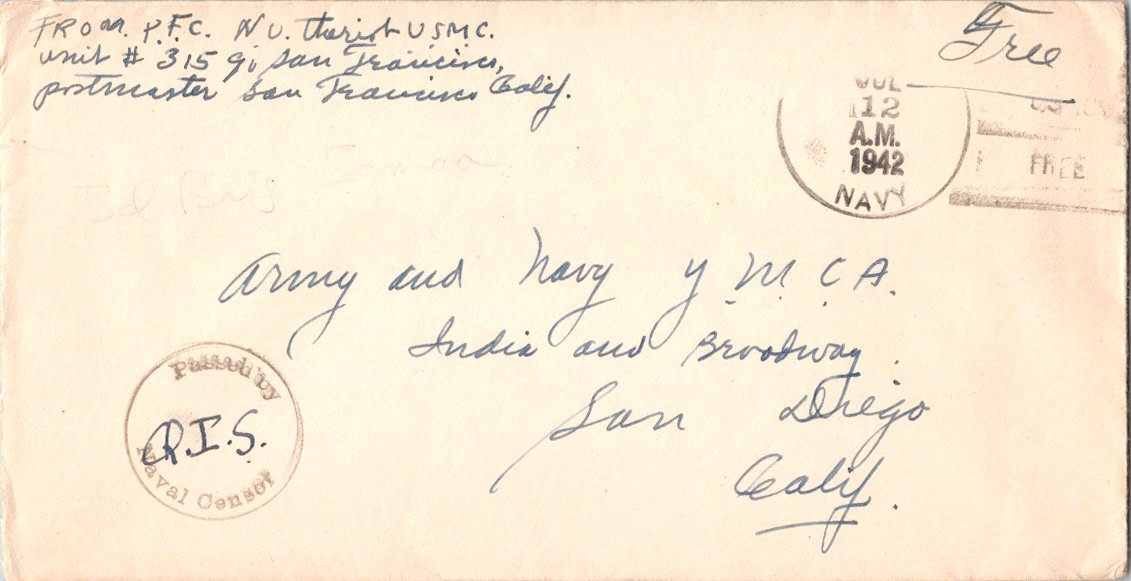 FROM. P.F.C. N U. Theriot USMC.
unit # 315 % San Francisco,
postmaster San Francisco Calif.
Free
JUL
12
A.M.
1942
NAVY
FREE
3d Brig Samoa
Army and Navy Y M.C.A.
India and Broadway.
San Diego
Calif.
Passed by
R.I.S.
Naval Censor